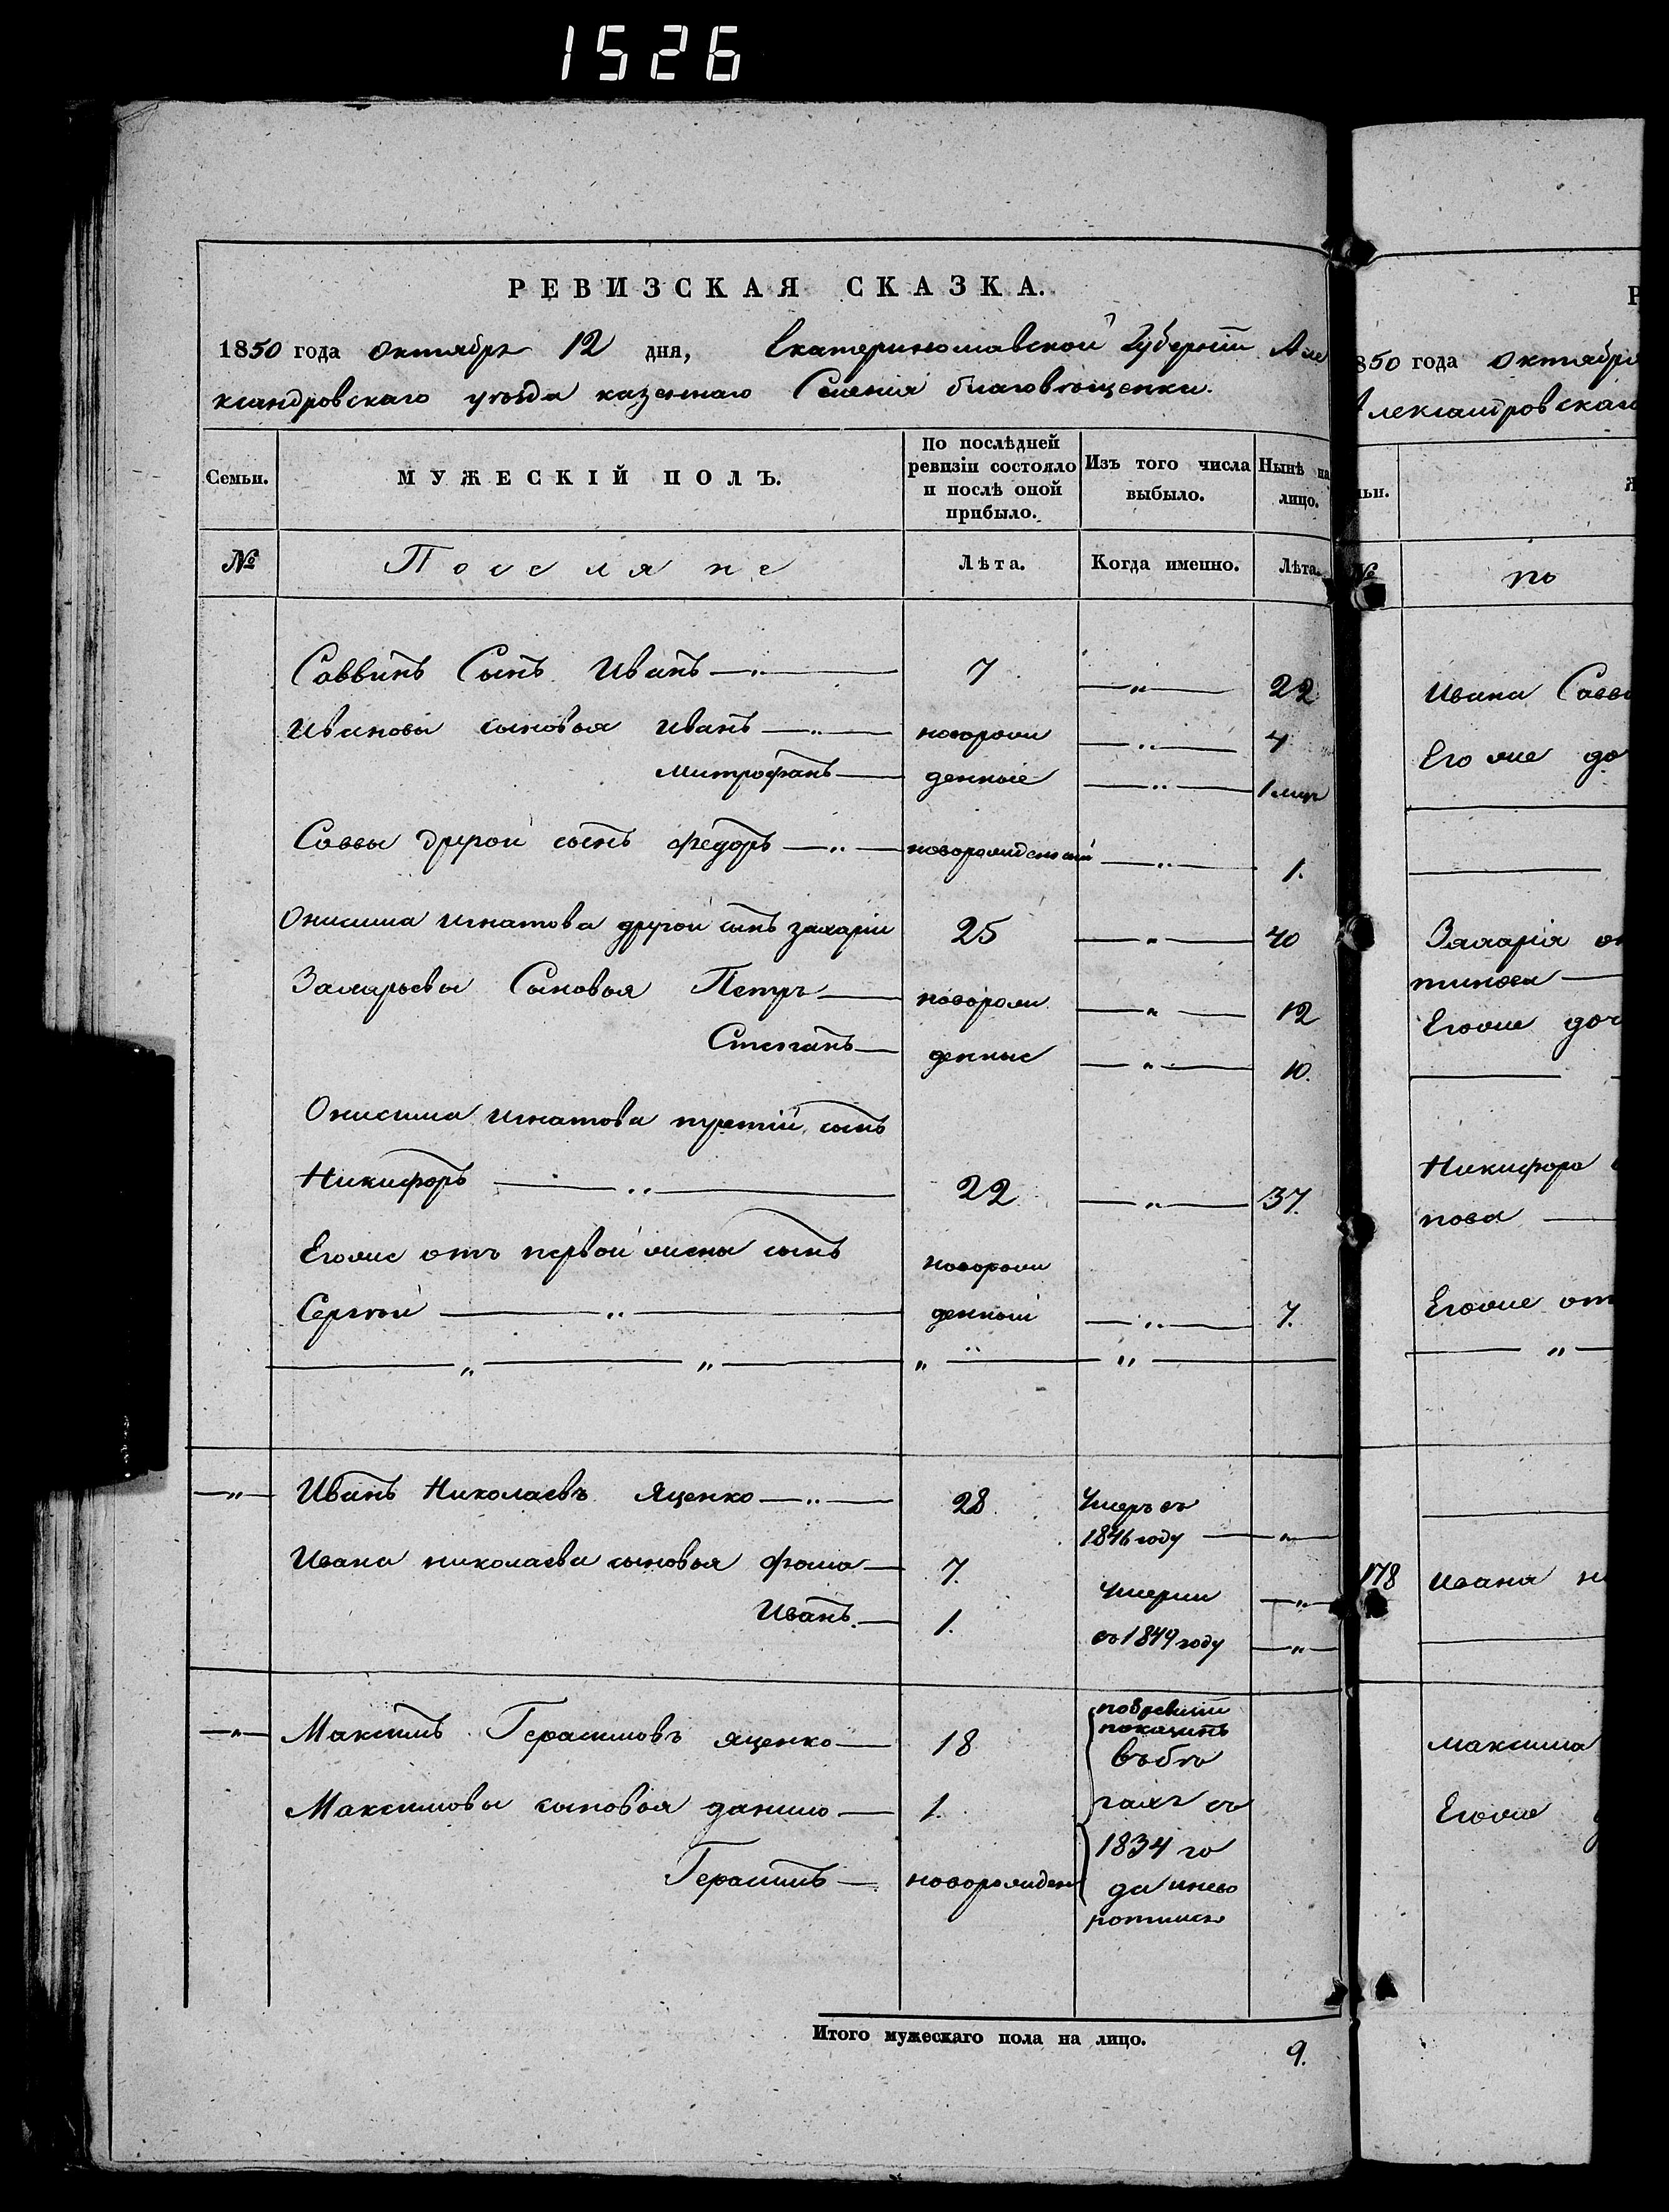 1526
РЕВИЗСКАЯ СКАЗКА.
1850 года октября 12 дня, Екатеринославской Губернiи Але
ксандровскаго уѣзда казеннаго Селенiя благовѣщенки.
Семьи. МУЖЕСКIЙ ПОЛЪ. По послѣдней ревизiи состояло и послѣ оной прибыло. Изъ того числа выбыло. Нынѣ на лицо.
№ Поселяне Лѣта. Когда именно. Лѣта.
Саввинъ Сынъ Иванъ —„— 7 —„— 22
Ивановы сыновья Иванъ —„— новорож —„— 4
Митрофанъ — денные —„— 1 мѣр
Саввы другой сынъ федоръ —„— новорожденный —„— 1.
Онисима игнатова другой сынъ захарiи 25 —„— 40
Захарьевы Сыновья Петръ — новорож —„— 12
Степанъ — денные —„— 10.
Онисима игнатова третiй сынъ
Никифоръ —„— 22 —„— 37.
Егоже отъ первой жены сынъ новорож
Сергѣй —„— денный —„— 7.
—„— Иванъ Николаевъ Яценко —„— 28 Умеръ въ
1846 году —„—
Ивана николаева сыновья фома — 7. Умерли —„—
Иванъ — 1. въ 1849 году —„—
—„— Максимъ Герасимовъ яценко — 18 по ревизiи
показанъ
въ бѣ
Максимовы сыновья данило — 1. гахъ съ
1834 го
Герасимъ — новорожден да
Итого мужескаго пола на лицо. 9.
Р
850 года октября
Александровскаго
ьи.
№ по
Ивана Савви
Его же до
Захарiя он
тинова —
Егоже доч
Никифора
пова —
Егоже от
—„—
178 Ивана н
Максима
Егоже